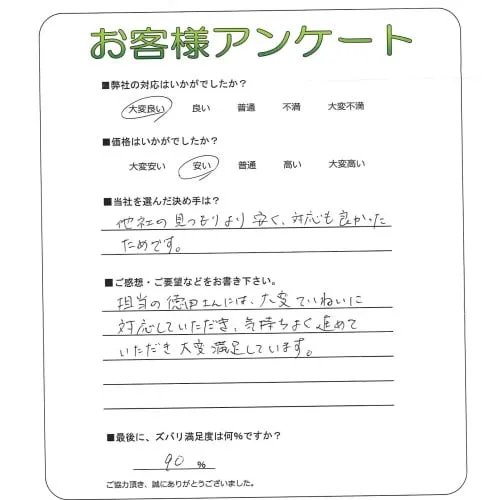 お客様アンケート
■弊社の対応はいかがでしたか？
大変良い 良い 普通 不満 大変不満
■価格はいかがでしたか？
大変安い 安い 普通 高い 大変高い
■当社を選んだ決め手は？
他社の見つもりより安く、対応も良かった
ためです。
■ご感想・ご要望などをお書き下さい。
担当の徳田さんには、大変ていねいに
対応していただき、気持ちよく進めて
いただき大変満足しています。
■最後に、ズバリ満足度は何%ですか？
90 %
ご協力頂き、誠にありがとうございました。